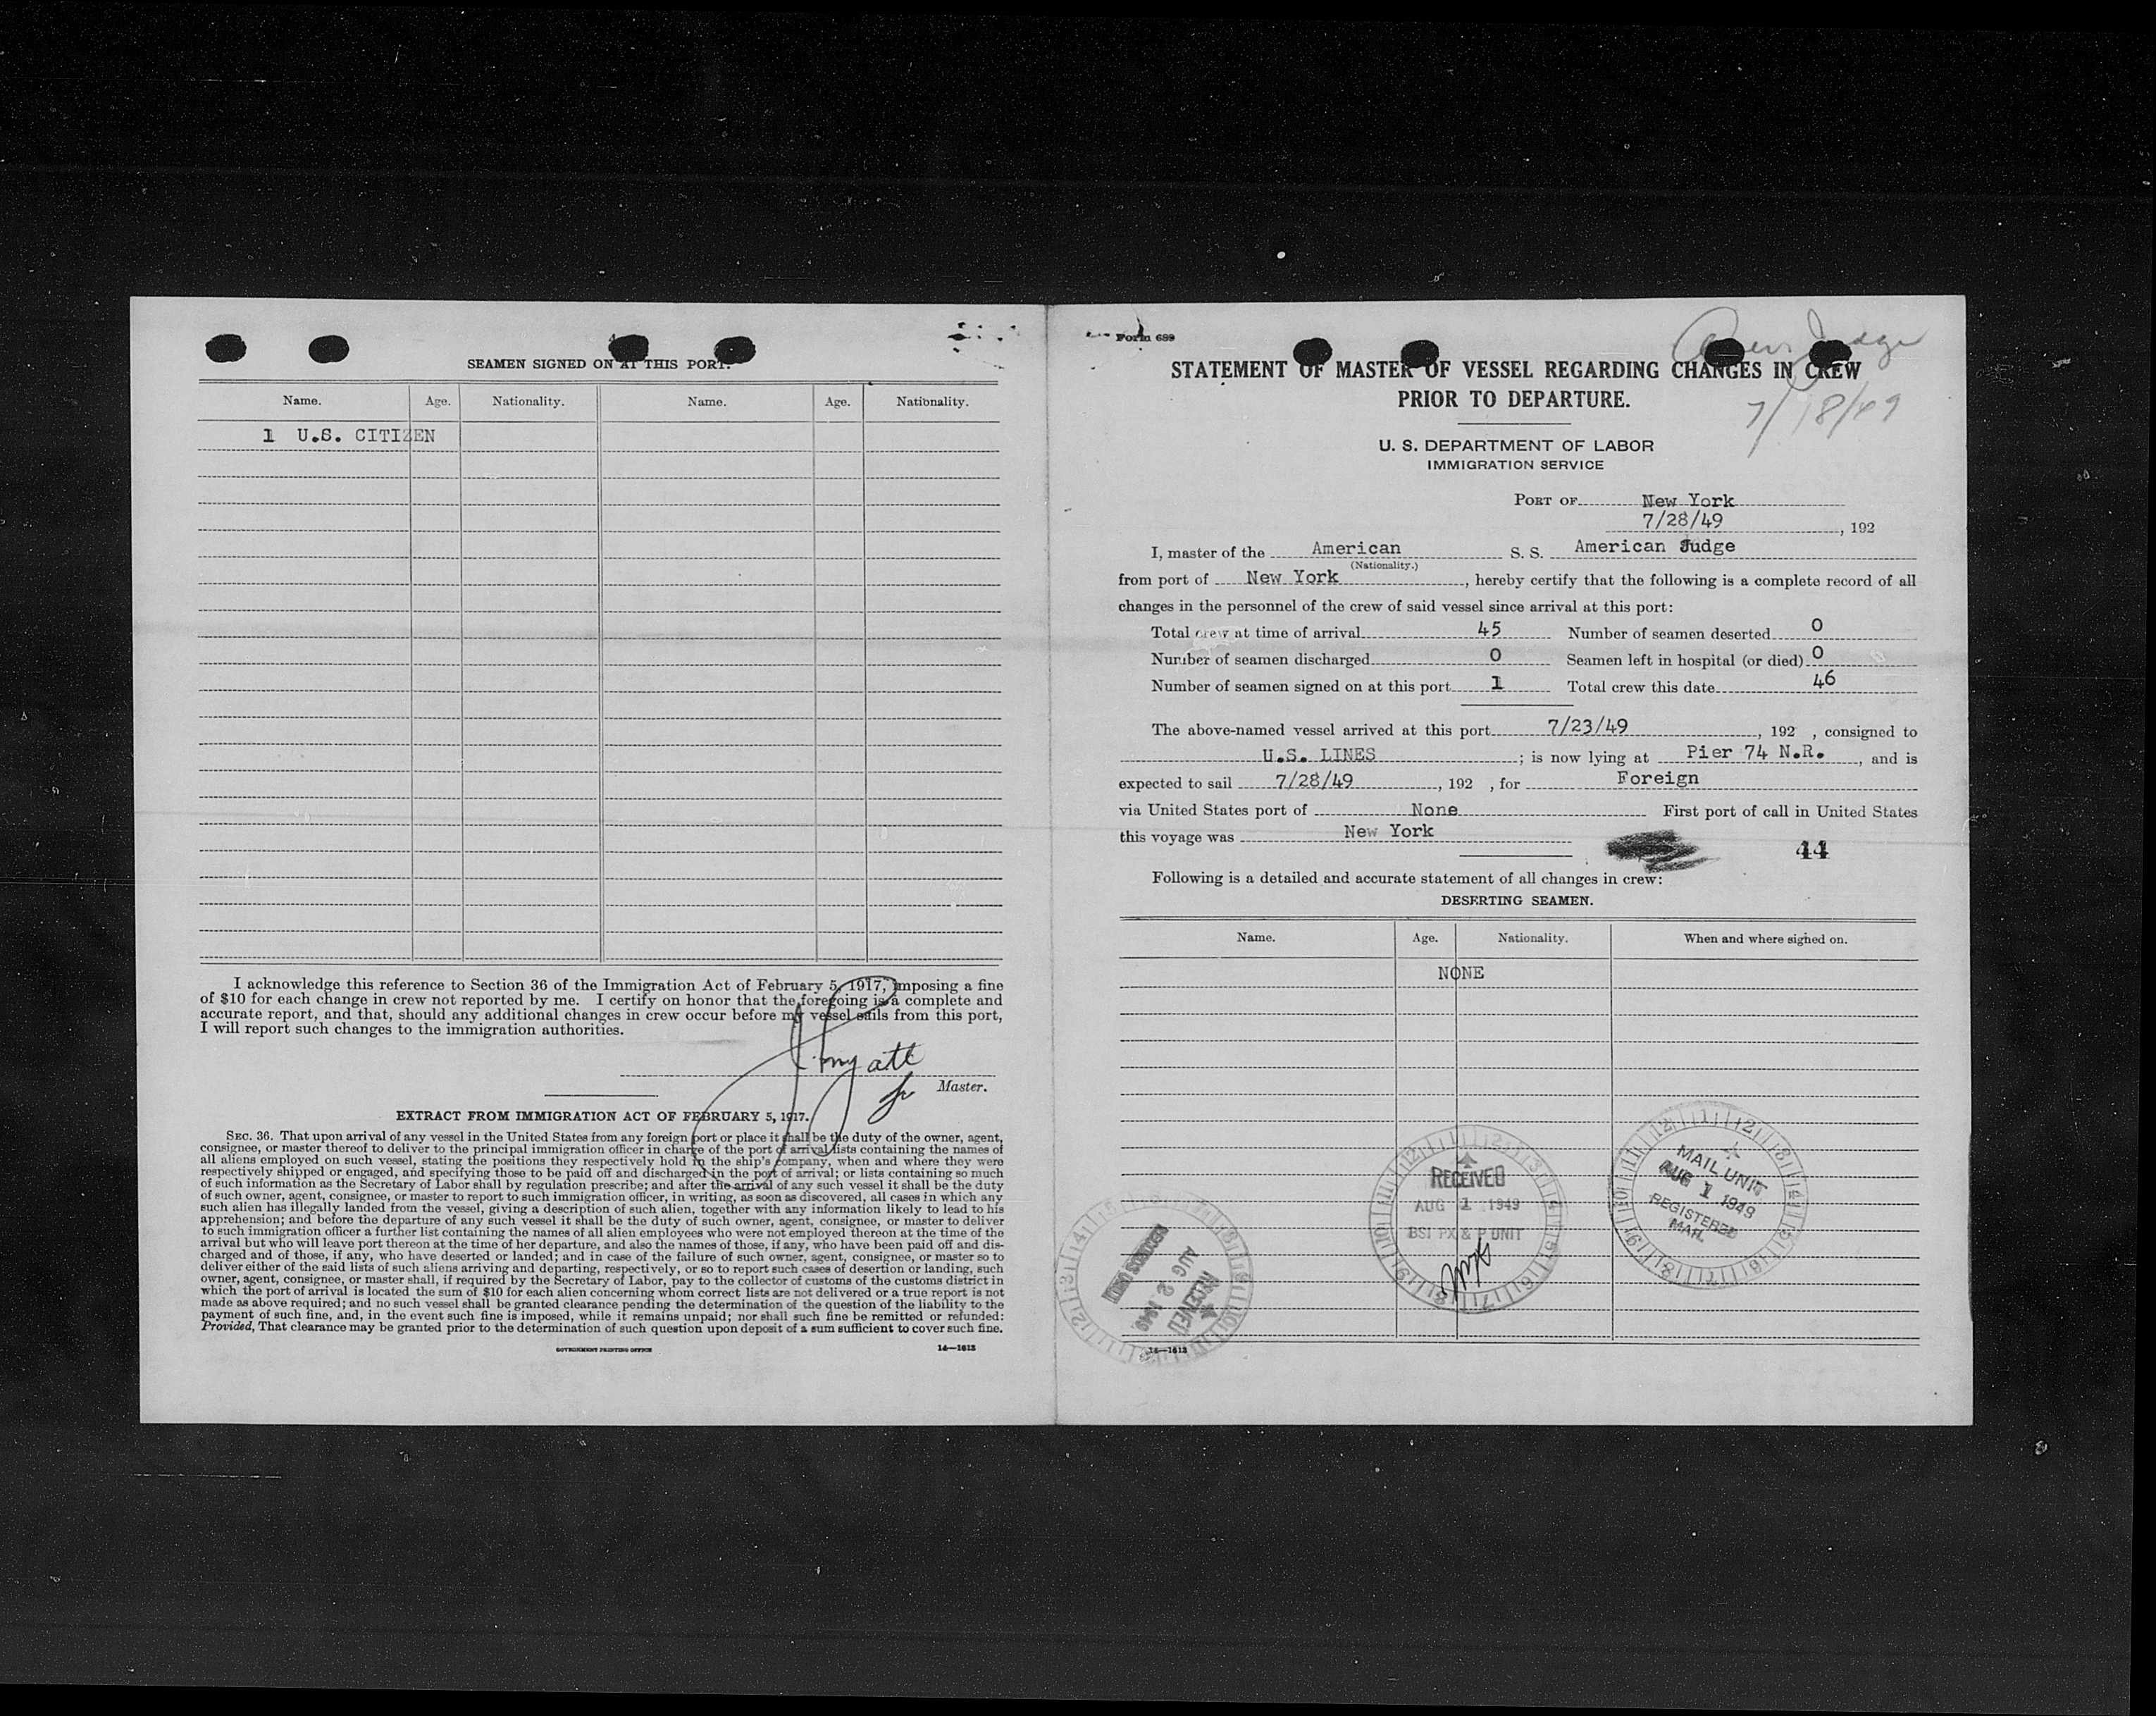 SEAMEN SIGNED ON AT THIS PORT.
Name. Age. Nationality. Name. Age. Nationality.
1 U.S. CITIZEN
I acknowledge this reference to Section 36 of the Immigration Act of February 5, 1917, imposing a fine
of $10 for each change in crew not reported by me. I certify on honor that the foregoing is a complete and
accurate report, and that, should any additional changes in crew occur before my vessel sails from this port,
I will report such changes to the immigration authorities.
Master.
EXTRACT FROM IMMIGRATION ACT OF FEBRUARY 5, 1917.
SEC. 36. That upon arrival of any vessel in the United States from any foreign port or place it shall be the duty of the owner, agent,
consignee, or master thereof to deliver to the principal immigration officer in charge of the port of arrival lists containing the names of
all aliens employed on such vessel, stating the positions they respectively hold in the ship's company, when and where they were
respectively shipped or engaged, and specifying those to be paid off and discharged in the port of arrival; or lists containing so much
of such information as the Secretary of Labor shall by regulation prescribe; and after the arrival of any such vessel it shall be the duty
of such owner, agent, consignee, or master to report to such immigration officer, in writing, as soon as discovered, all cases in which any
such alien has illegally landed from the vessel, giving a description of such alien, together with any information likely to lead to his
apprehension; and before the departure of any such vessel it shall be the duty of such owner, agent, consignee, or master to deliver
to such immigration officer a further list containing the names of all alien employees who were not employed thereon at the time of the
arrival but who will leave port thereon at the time of her departure, and also the names of those, if any, who have been paid off and dis-
charged and of those, if any, who have deserted or landed; and in case of the failure of such owner, agent, consignee, or master so to
deliver either of the said lists of such aliens arriving and departing, respectively, or so to report such cases of desertion or landing, such
owner, agent, consignee, or master shall, if required by the Secretary of Labor, pay to the collector of customs of the customs district in
which the port of arrival is located the sum of $10 for each alien concerning whom correct lists are not delivered or a true report is not
made as above required; and no such vessel shall be granted clearance pending the determination of the question of the liability to the
payment of such fine, and, in the event such fine is imposed, while it remains unpaid; nor shall such fine be remitted or refunded:
Provided, That clearance may be granted prior to the determination of such question upon deposit of a sum sufficient to cover such fine.
GOVERNMENT PRINTING OFFICE 14—1613
Form 689
Amer. Judge
7/18/49
STATEMENT OF MASTER OF VESSEL REGARDING CHANGES IN CREW
PRIOR TO DEPARTURE.
U. S. DEPARTMENT OF LABOR
IMMIGRATION SERVICE
PORT OF New York
7/28/49, 192
I, master of the American S. S. American Judge
(Nationality.)
from port of New York, hereby certify that the following is a complete record of all
changes in the personnel of the crew of said vessel since arrival at this port:
Total crew at time of arrival 45 Number of seamen deserted 0
Number of seamen discharged 0 Seamen left in hospital (or died) 0
Number of seamen signed on at this port 1 Total crew this date 46
The above-named vessel arrived at this port 7/23/49, 192 , consigned to
U.S. LINES; is now lying at Pier 74 N.R., and is
expected to sail 7/28/49, 192 , for Foreign
via United States port of None First port of call in United States
this voyage was New York
44
Following is a detailed and accurate statement of all changes in crew:
DESERTING SEAMEN.
Name. Age. Nationality. When and where signed on.
NONE
RECEIVED
AUG 1 1949
BSI PX & P UNIT
MAIL UNIT
AUG 1 1949
REGISTERED
MAIL
RECEIVED
AUG 2 1949
RECORDS UNIT
14—1613